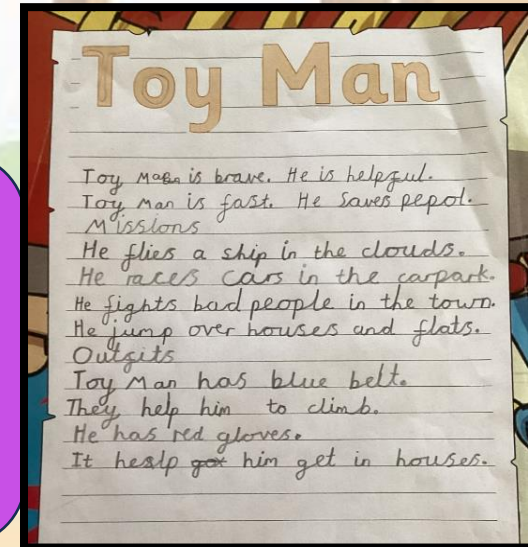 Toy Man
Toy Man is brave. He is helpful.
Toy Man is fast. He saves pepol.
Missions
He flies a ship in the clouds.
He races cars in the carpark.
He fights bad people in the town.
He jump over houses and flats.
Outfits
Toy Man has blue belt.
They help him to climb.
He has red gloves.
It heslp him get in houses.